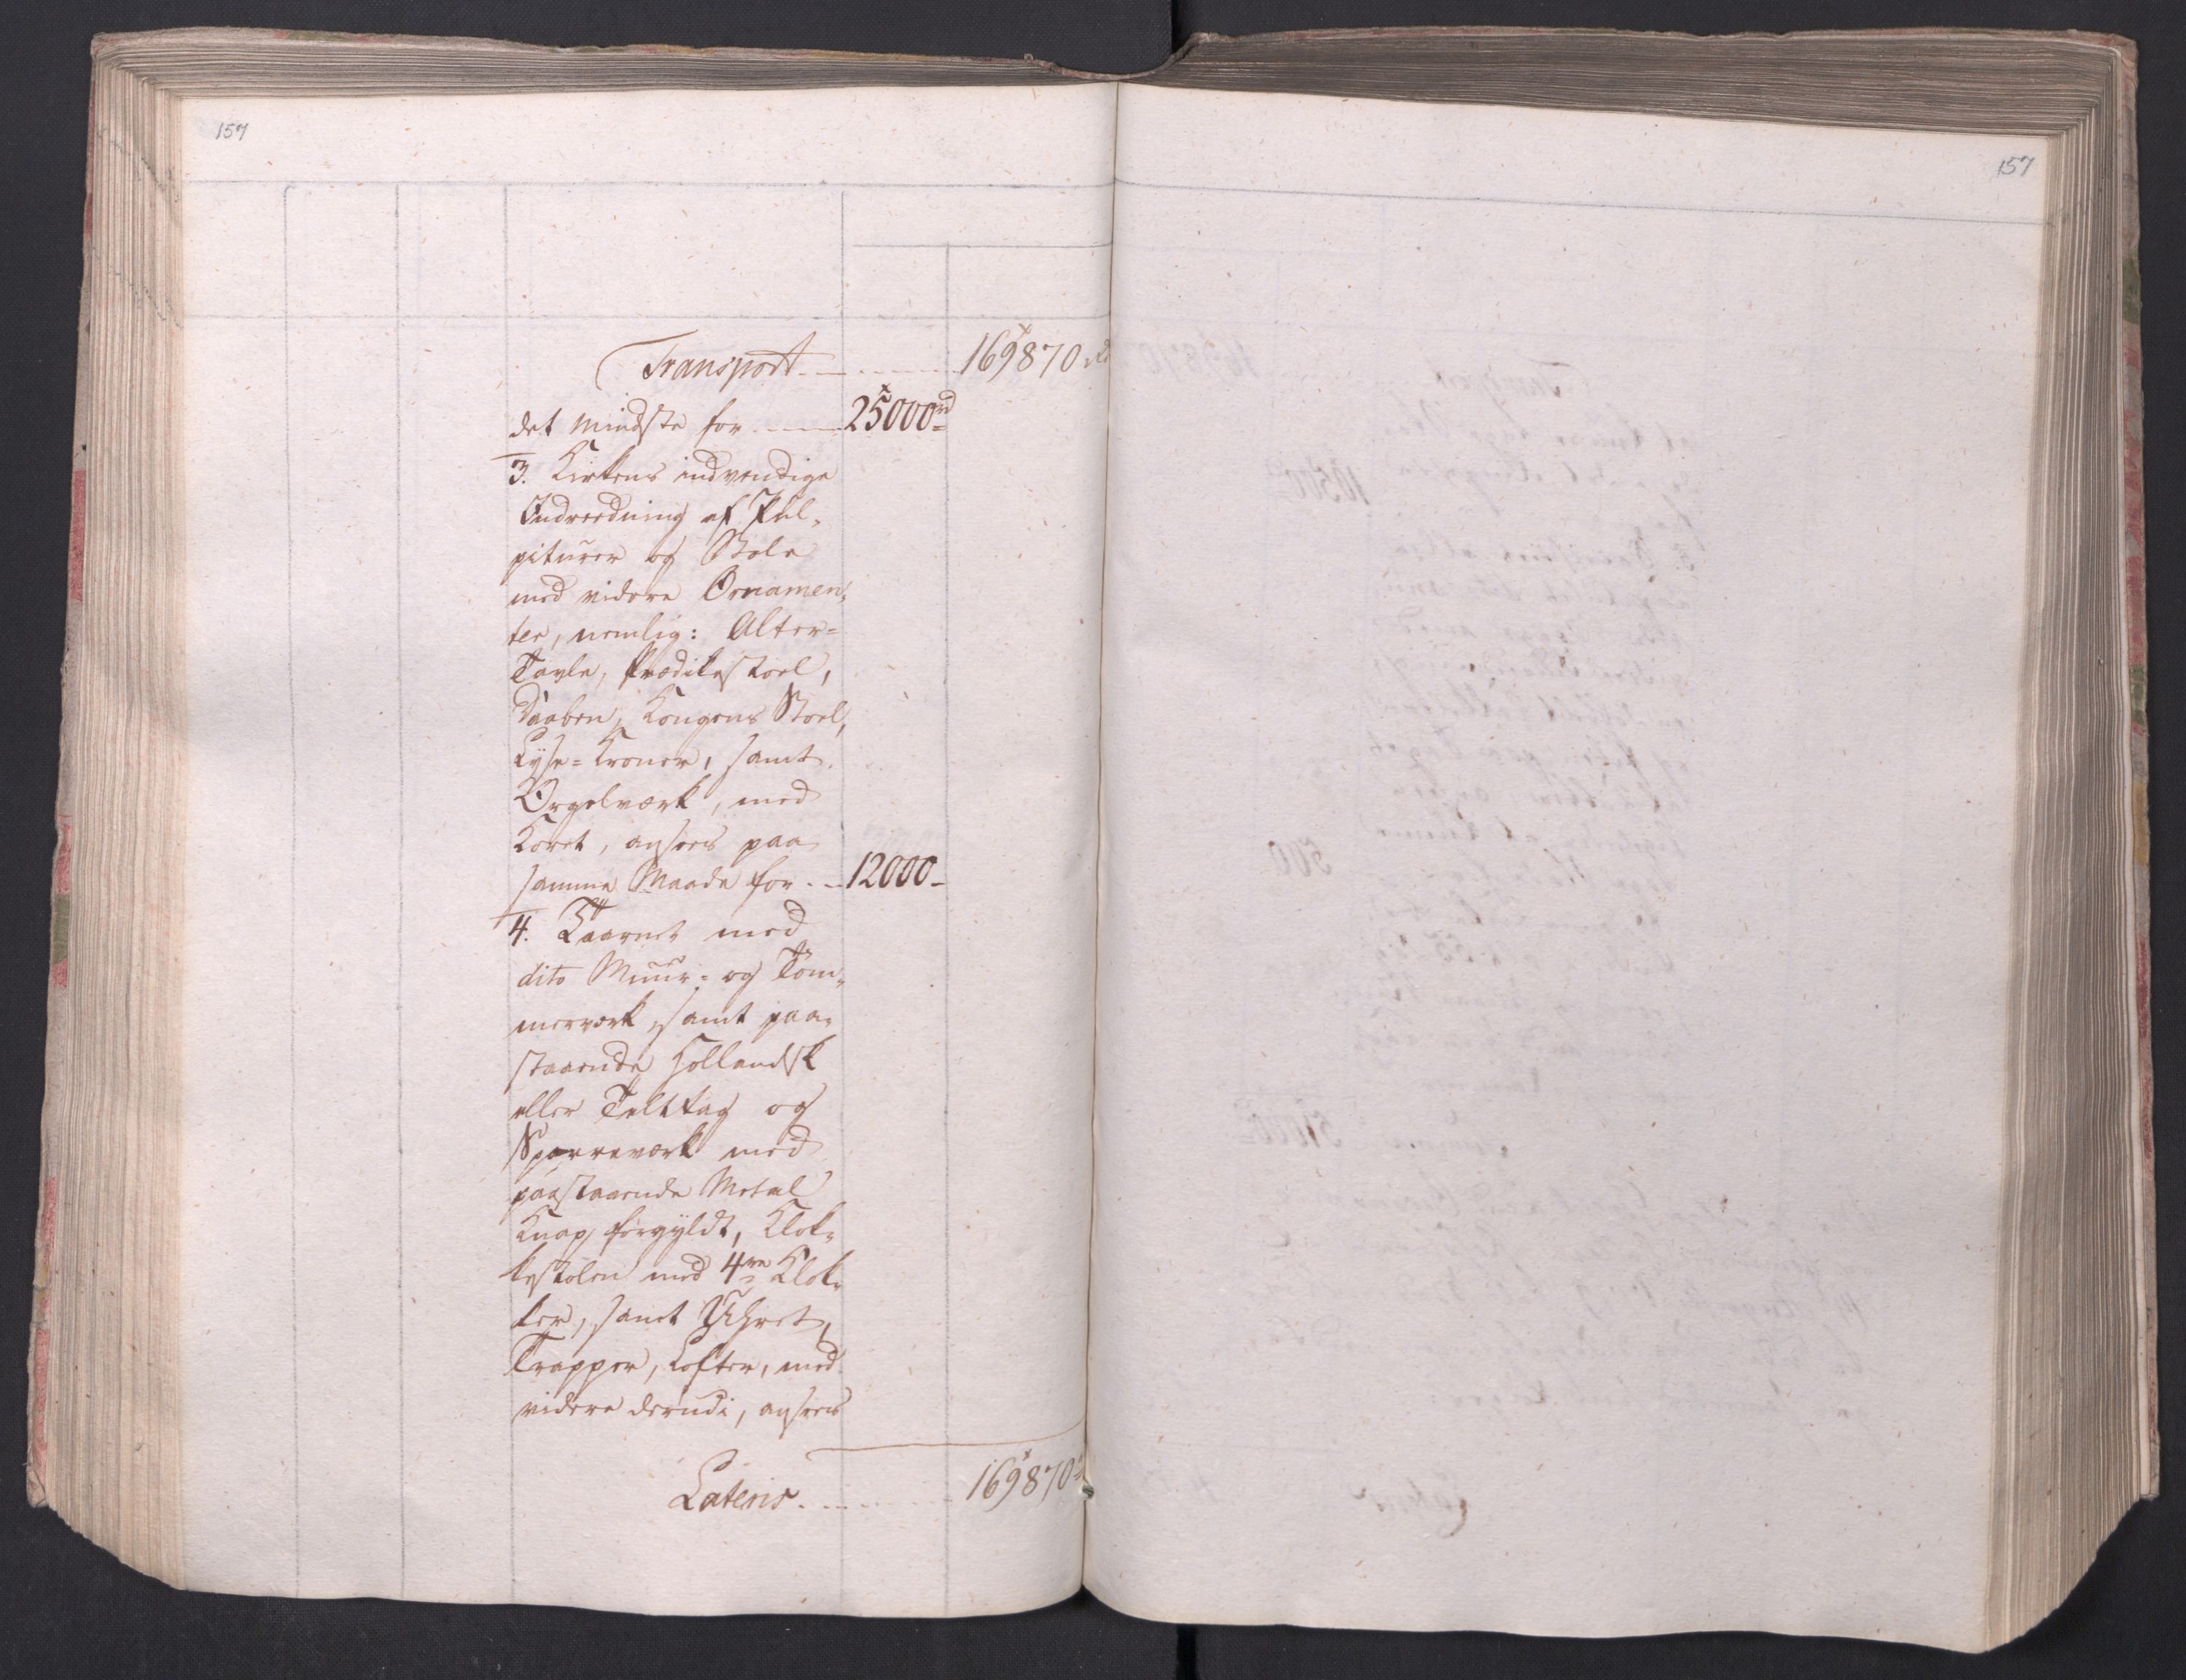 157
157
Transport - - - - - - 169870 rd
det mindste for - - - 25000 rd
3. Kirkens indvendige
Indreedning af Pul-
piturer og Stole
med videre Ornamen-
ter, nemlig: Alter-
Tavle, Prædikestoel,
Daaben, Kongens Stoel,
Lyse-Kroner, samt
Orgelværk, med
Koret, ansees paa
samme Maade for - - 12000 -
4. Taarnet med
dito Muur- og Töm-
merværk, samt paa-
staaende Hollandsk
eller Telttag og
Sparreværk med
paastaaende Metal
Knap forgyldt, Klok-
kestolen med 4re Klok-
ker, samt Uhret,
Trapper, Lofter, med
videre derudi, ansees
Lateris - - - - - 169870 rd